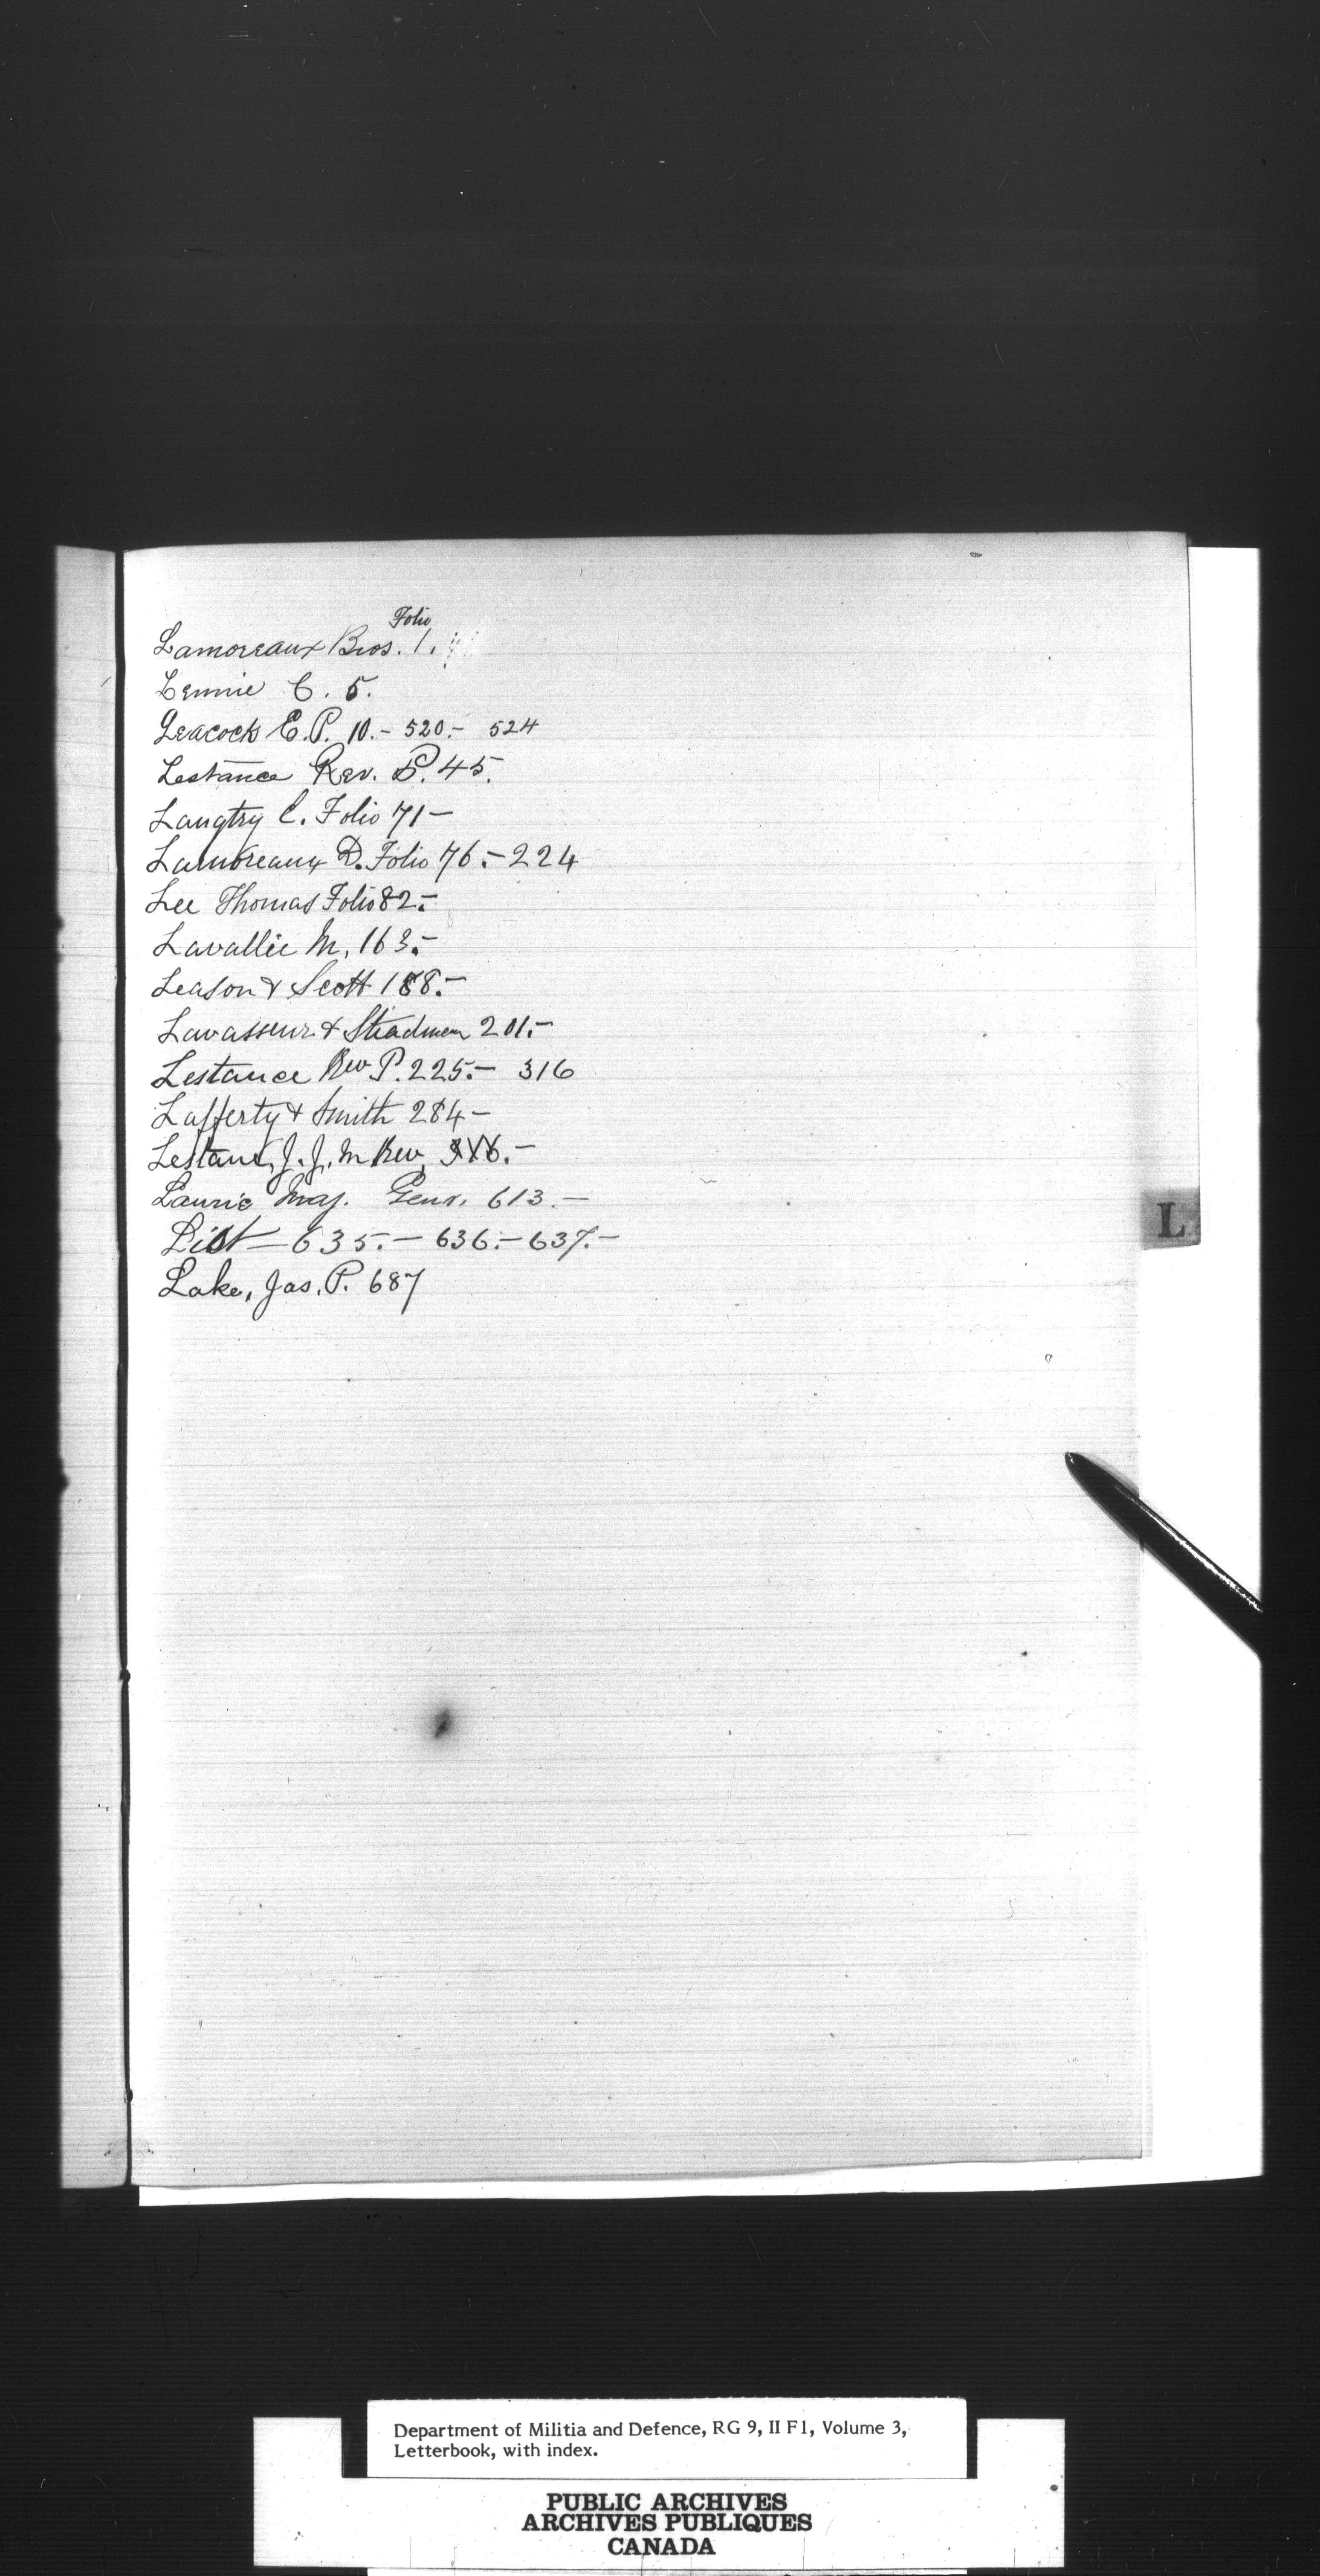 Folio
Lamoreaux Bros. 1.
Lennie C. 5.
Leacock E.P. 10.- 520.- 524
Lestance Rev. P. 45.
Langtry C. Folio 71-
Lamoreaux D. Folio 76.-224
Lee Thomas Folio 82.-
Lavallie M. 163.-
Leason & Scott 188.-
Lavasseur & Steadman 201.-
Lestance Rev P. 225.- 316
Lafferty & Smith 284-
Lestanc, J. J. M Rev. 316.-
Laurie Maj. Genr. 613.-
List-635.-636.-637.-
Lake, Jas. P. 687
L
Department of Militia and Defence, RG 9, II F1, Volume 3,
Letterbook, with index.
PUBLIC ARCHIVES
ARCHIVES PUBLIQUES
CANADA